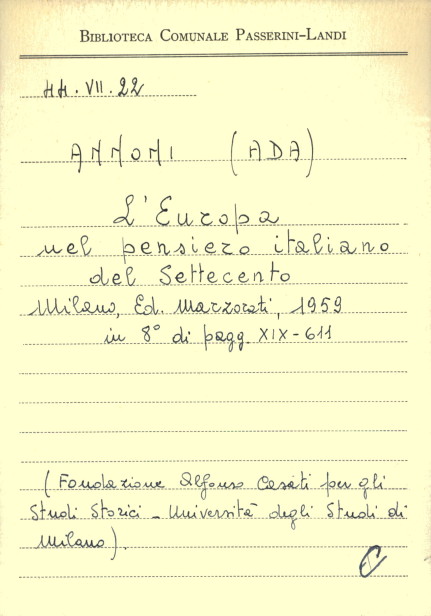 BIBLIOTECA COMUNALE PASSERINI-LANDI
HH.VII.22
ANNONI (ADA)
L'Europa
nel pensiero italiano
del Settecento
Milano, Ed. Marzorati, 1959
in 8° di pagg. XIX-611
(Fondazione Alfonso Casati per gli
Studi Storici - Università degli Studi di
Milano).